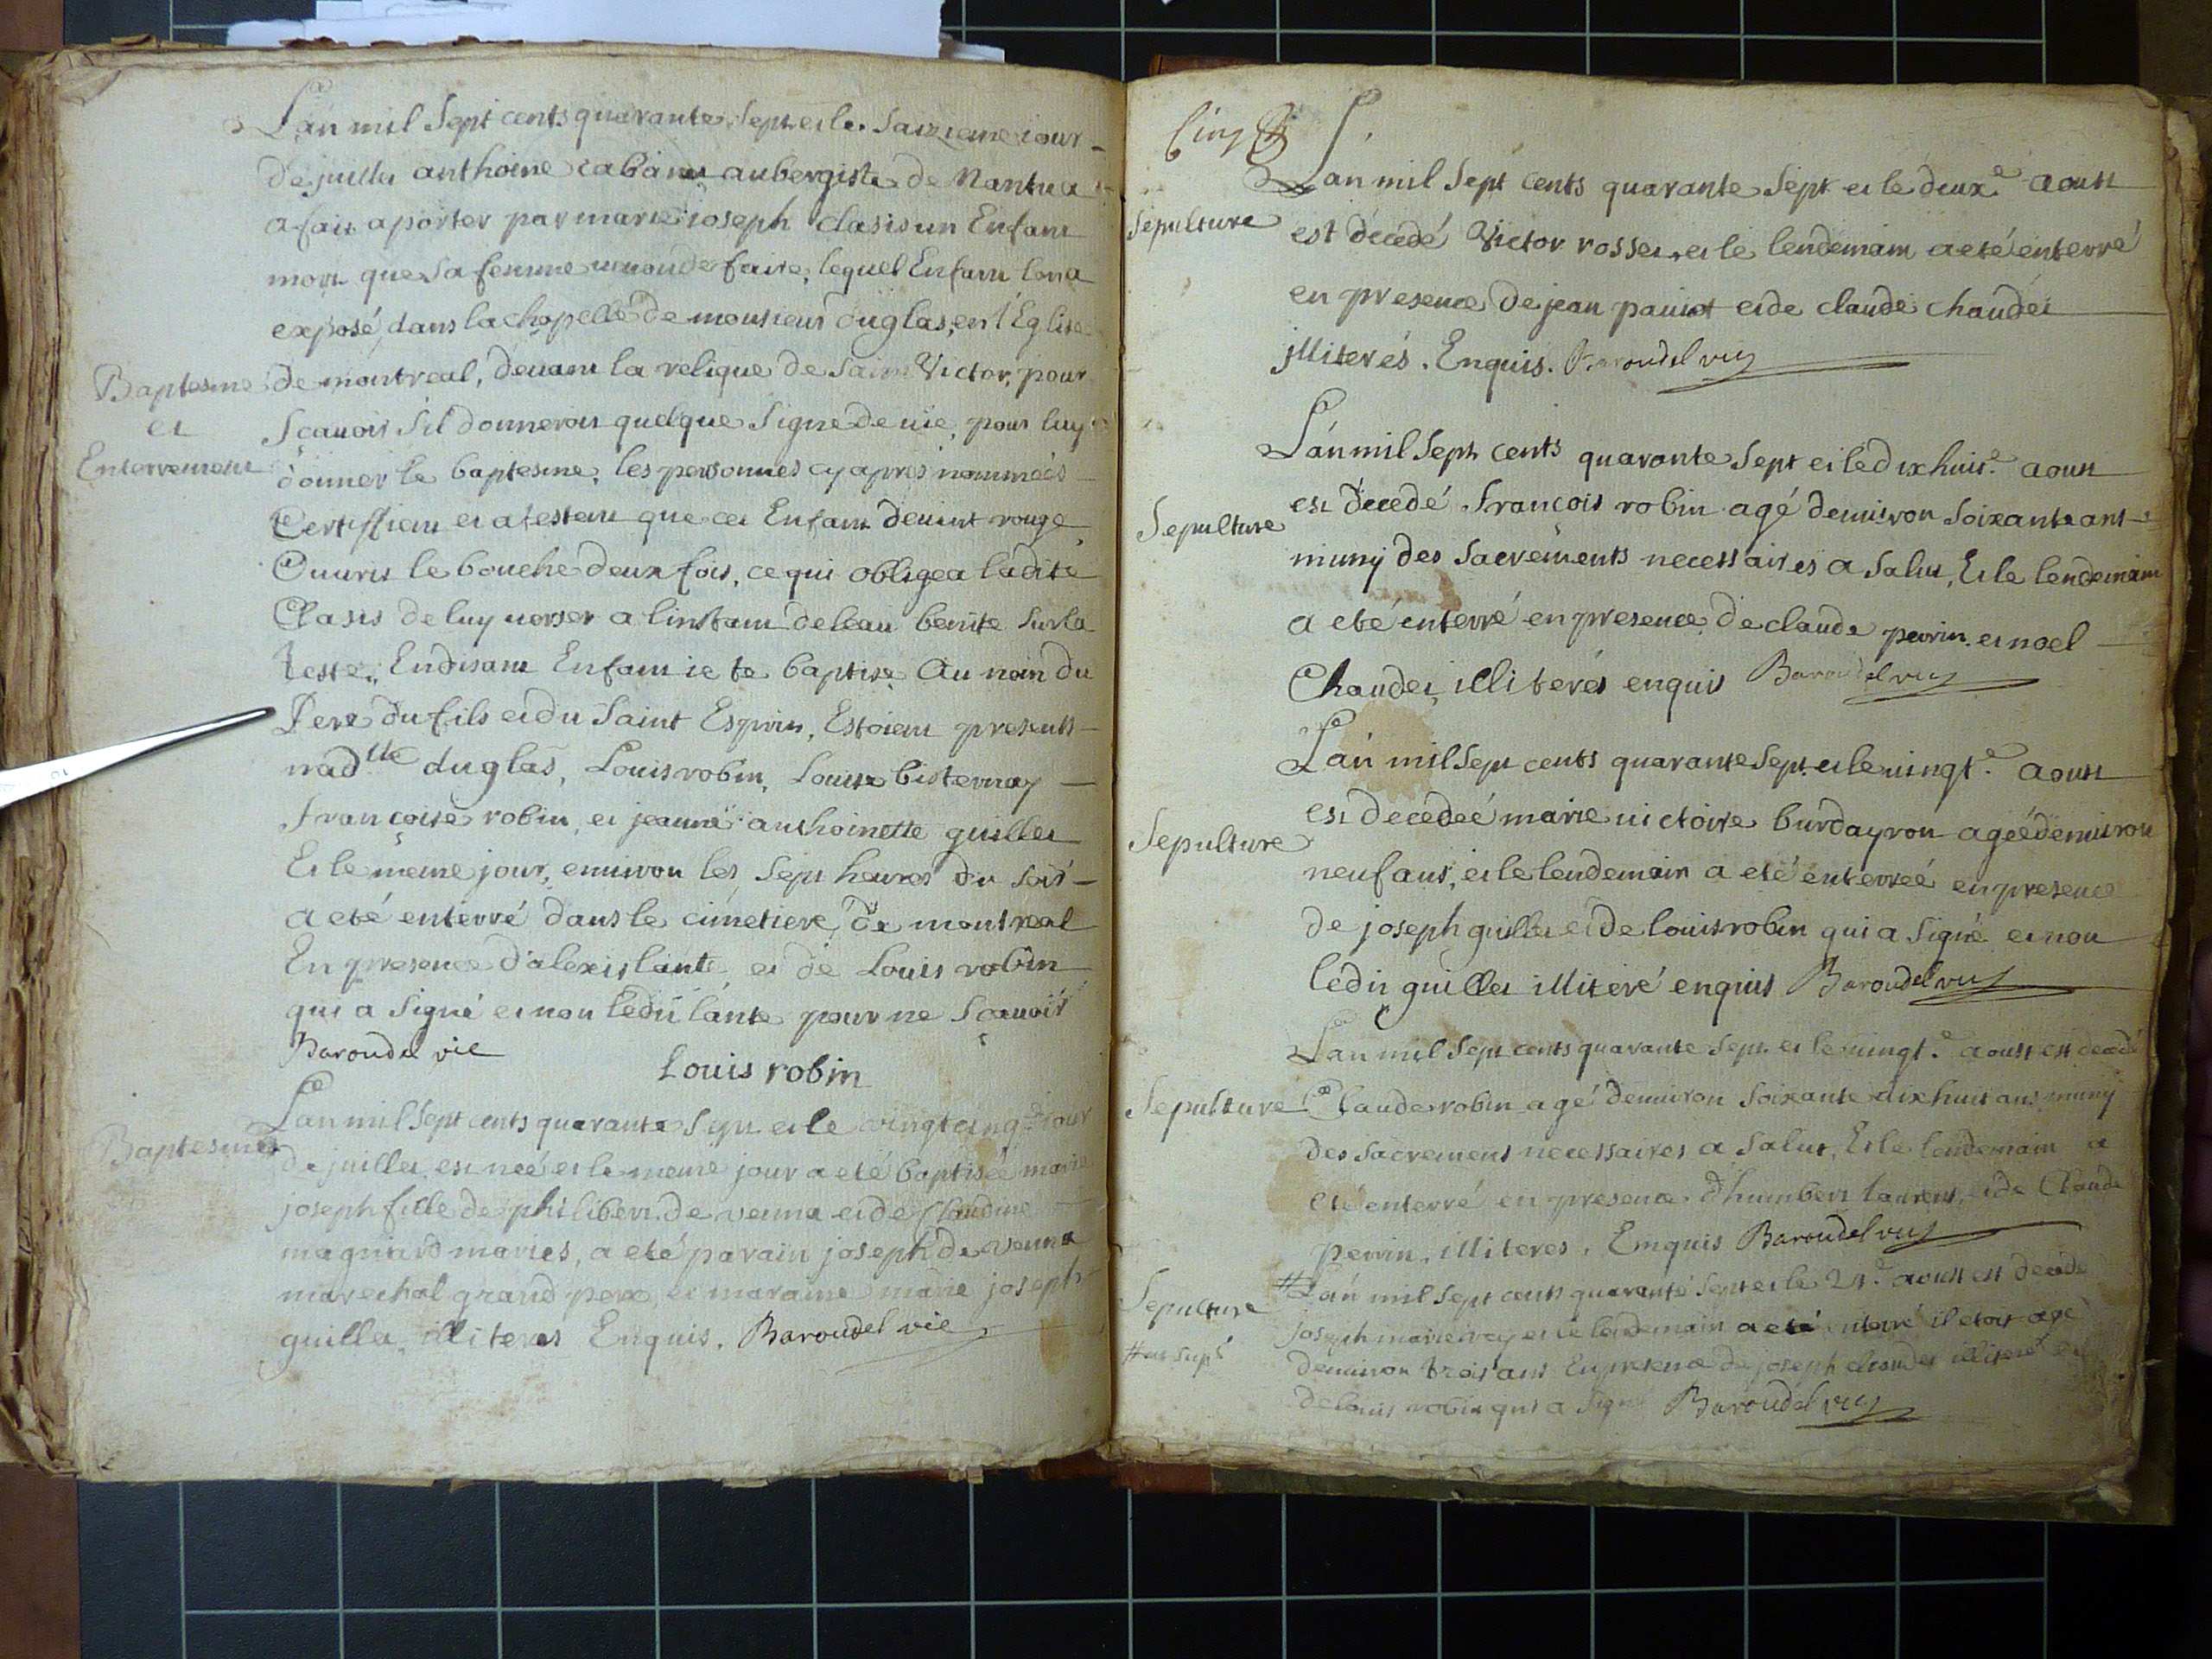 Baptesme
et
Enterrement
L'an mil Sept cents quarante Sept et le Saizieme jour
de juillet anthoine cabanet aubergiste de Nantua
a fait aporter par marie joseph Clasis un Enfant
mort que Sa femme venoit de faire, lequel Enfant lon a
exposé, dans la chapelle de monsieur duglas, en l'Eglise
de montreal, devant la relique de Saint Victor, pour
Scavoir Sil donneroit quelque Signe de vie, pour luy
donner le baptesme, les personnes cy apres nommées
Certiffient et atestent que cet Enfant devint rouge
Ouvrit le bouche deux fois, ce qui obligea ladite
Clasis de luy verser a linstant de leau benite Sur la
teste, En disant Enfant ie te baptise Au nom du
Pere du fils et du Saint Esprit, Estoient presents
mad.lle duglas, Louis robin, Louise bisternay
francoise robin, et jeanne anthoinette guillet
Et le meme jour, environ les Sept heures du Soir
a eté enterré dans le cimetiere de montreal
En presence d'alexis lante et de Louis robin
qui a Signé et non ledit lante pour ne Scavoir
Baroudel vic
Louis robin
Baptesme
L'an mil Sept cents quarante Sept et le vingt cinq.e jour
de juillet est neé et le meme jour a eté baptisée marie
joseph fille de philibert de venna et de Claudine
magniard mariés, a eté parain joseph de venna
marechal grand pere, et maraine marie joseph
guillet, illiterés Enquis. Baroudel vic
Cinq
L'an mil Sept cents quarante Sept et le deux.e aoust
Sepulture
est décedé Victor rosset et le lendemain a eté enterré
en presence de jean paniot et de claude chaudet
jlliterés. Enquis. Baroudel vic
L'an mil Sept cents quarante Sept et le dixhuit.e aoust
Sepulture
est décedé francois robin agé d'environ Soixante ans
muny des Sacrements necessaires a Salut, Et le lendemain
a eté enterré en presence de claude perrin et noel
Chaudet, illiterés enquis Baroudel vic
L'an mil Sept cents quarante Sept et le vingt.e aoust
Sepulture
est decedeé marie victoire burdayron ageé d'environ
neuf ans, et le lendemain a eté enterreé en presence
de joseph guillet et de louis robin qui a Signé et non
ledit guillet illiteré enquis Baroudel vic
L'an mil Sept cents quarante Sept et le vingt.e aoust est decedé
Sepulture
Claude robin agé d'environ Soixante dixhuit ans muny
des Sacrements necessaires a Salut, Et le lendemain a
eté enterré en presence d'humbert laurent, et de Claude
perrin, illiteres. Enquis Baroudel vic
# L'an mil Sept cents quarante Sept et le 21.e aoust est decedé
Sepulture
joseph marie et le lendemain a eté enterré il etoit agé
d'environ trois ans En presence de joseph chaudet illiteré et
de louis robin qui a Signé Baroudel vic